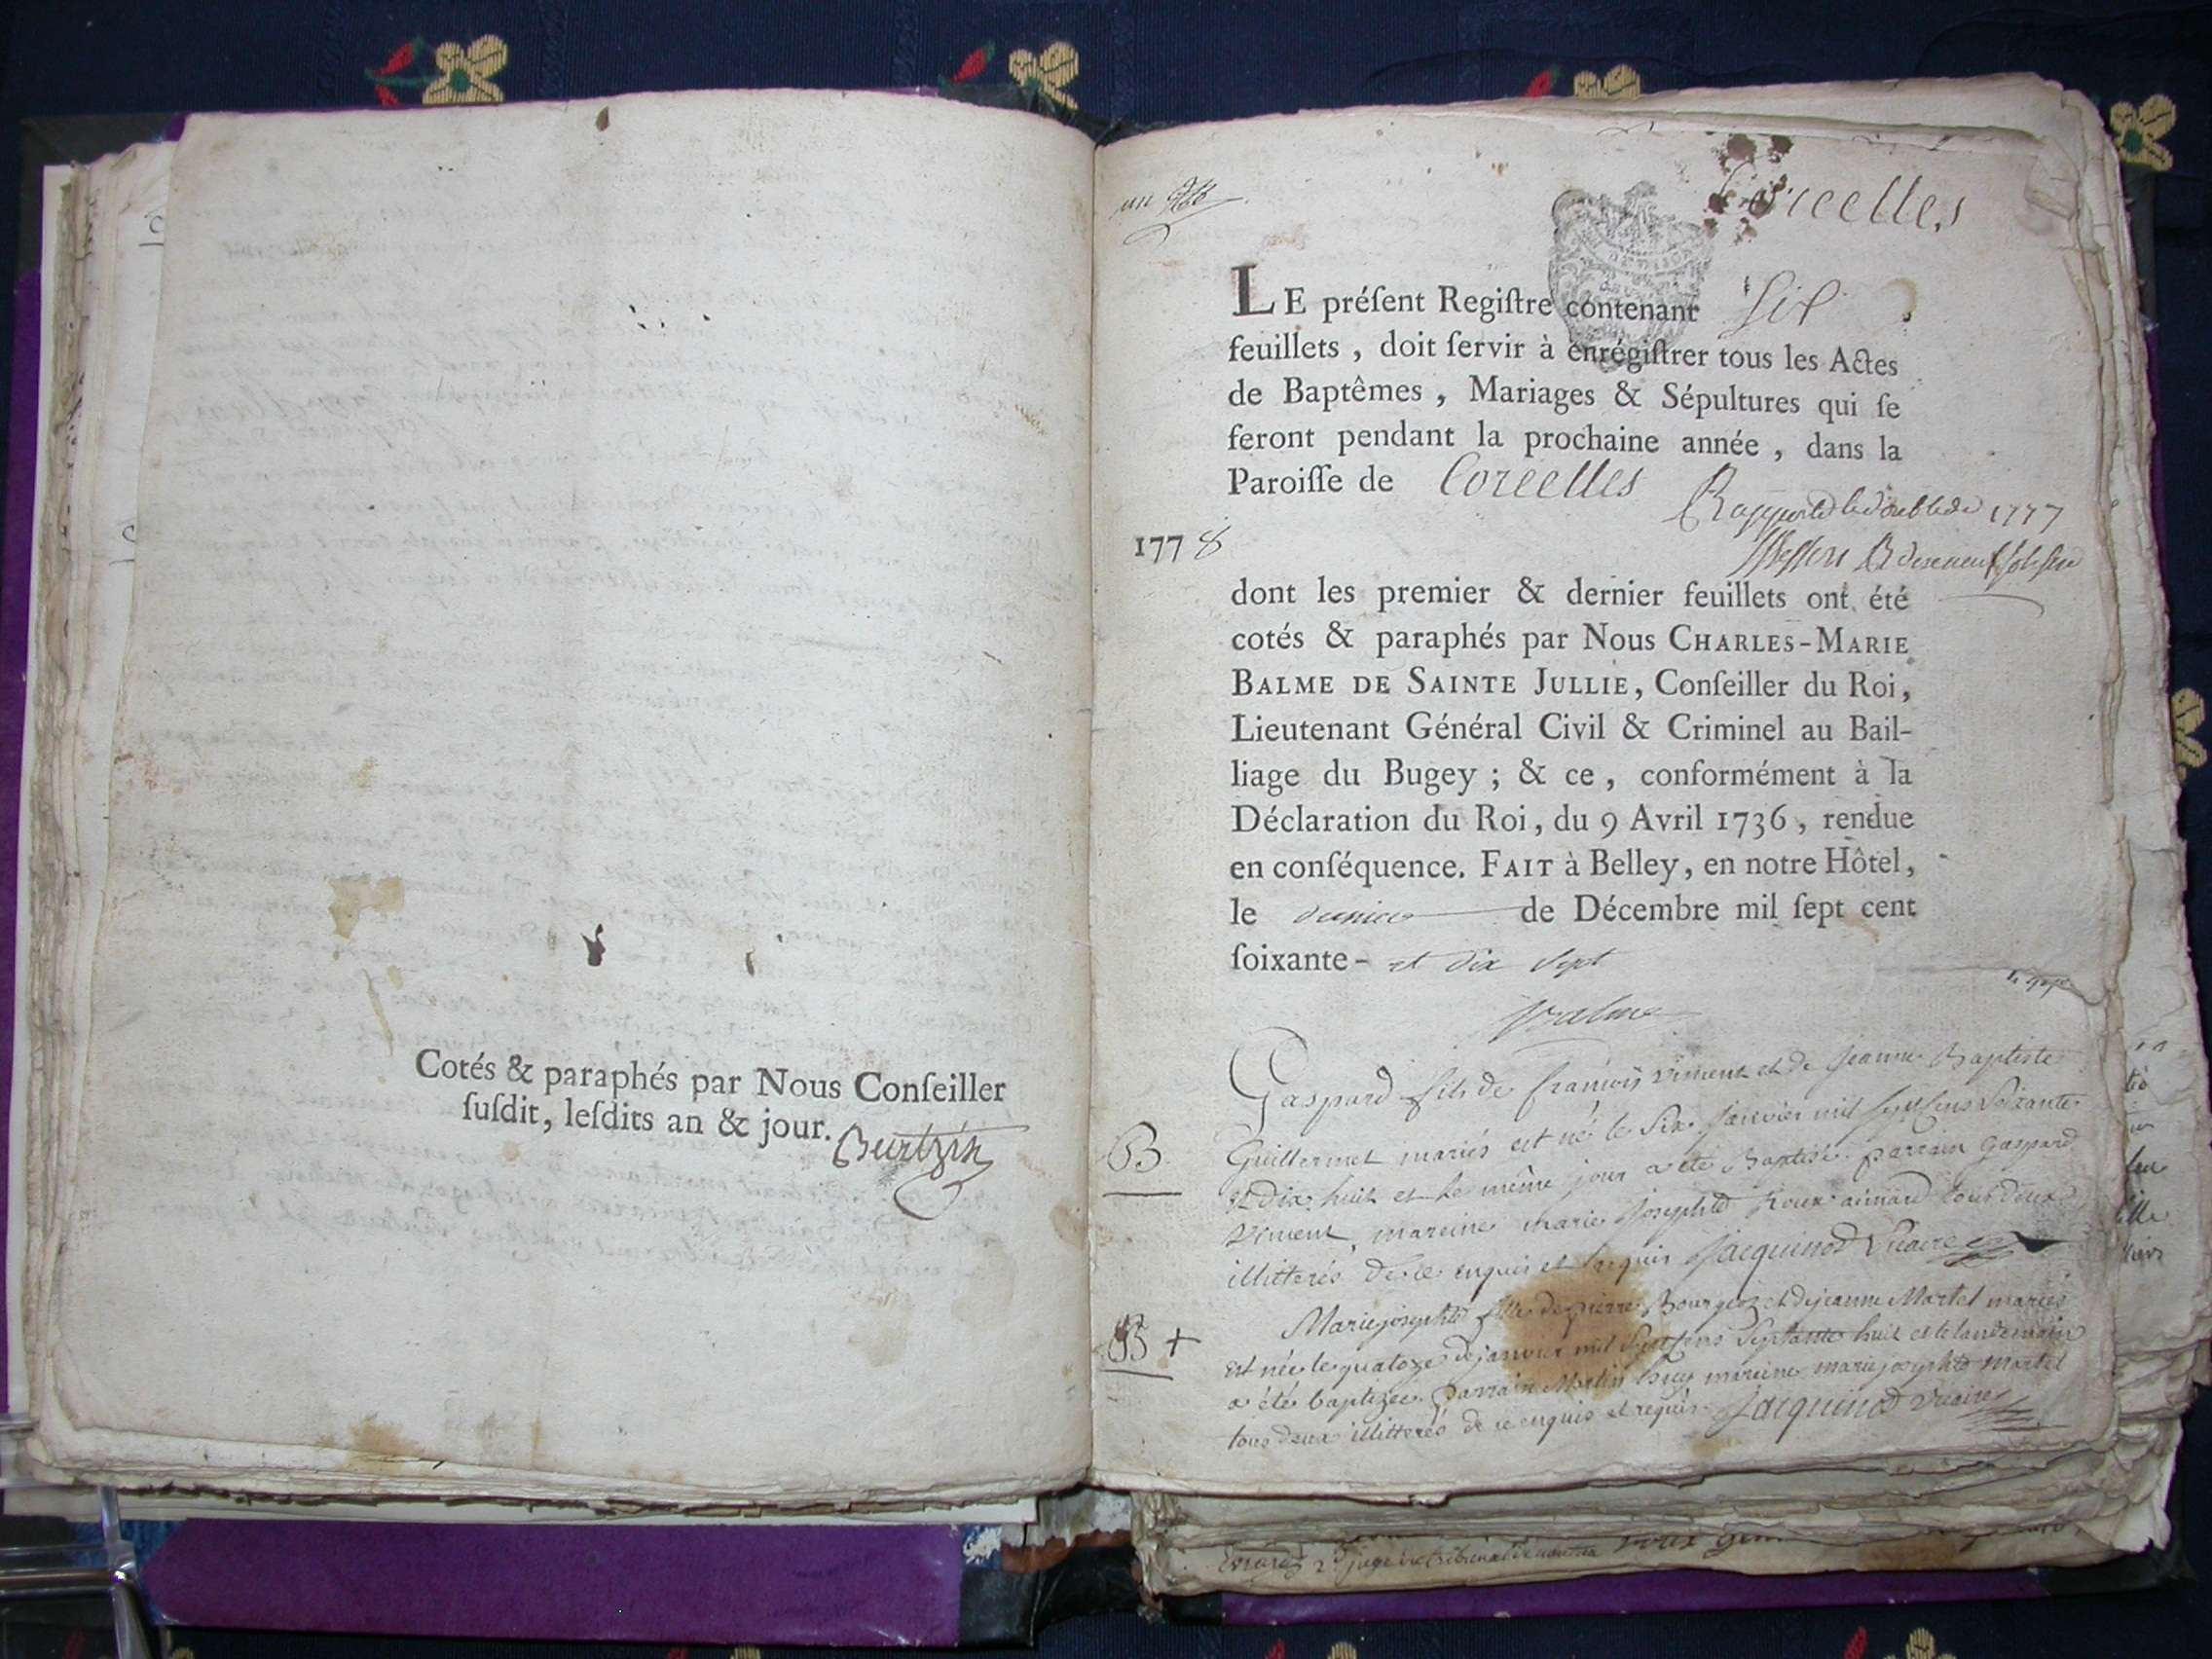 Cotés & paraphés par Nous Conſeiller
ſuſdit, leſdits an & jour.
un
Corcelles
LE préſent Regiſtre contenant Six
feuillets , doit ſervir à enrégiſtrer tous les Actes
de Baptêmes , Mariages & Sépultures qui ſe
feront pendant la prochaine année , dans la
Paroiſſe de Corcelles
1777
1778
dont les premier & dernier feuillets ont été
cotés & paraphés par Nous CHARLES-MARIE
BALME DE SAINTE JULLIE, Conſeiller du Roi,
Lieutenant Général Civil & Criminel au Bail-
liage du Bugey ; & ce , conformément à la
Déclaration du Roi, du 9 Avril 1736, rendue
en conſéquence. FAIT à Belley, en notre Hôtel,
le de Décembre mil ſept cent
ſoixante- et dix sept
Balme
Gaspard fils de françois Viment et de Jeanne Baptiste
B
Guillermet mariés est né le six Janvier mil sept cens soixante
et dix huit et le même jour a été Baptisé. parrain Gaspard
Viment, mareine Marie Josephte Roux aimard tous deux
illitterés de ce enquis et requis Jacquinod Vicaire
Marie josephte fille de pierre Bourgeoz et de jeanne Martel mariés
B +
est née le quatoze de janvier mil sept cens septante huit et le landemain
a été baptizée. parrain Martin huy mareine marie josephte martel
tous deux illitterés de ce enquis et requis. Jacquinod vicaire